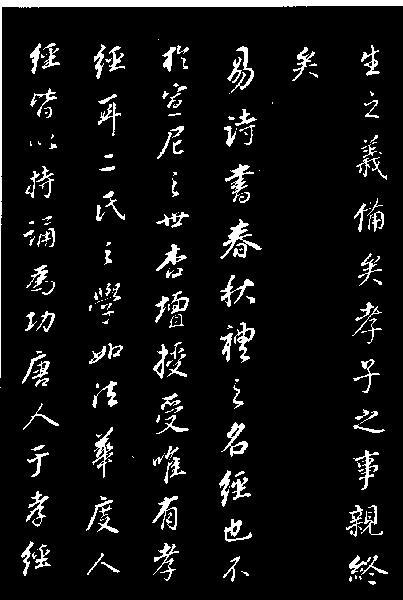 生之義備矣孝子之事親終
矣
易詩書春秋禮之名經也不
於宣尼之世杏壇授受唯有孝
經耳二氏之學如法華度人
經皆以持誦為功唐人于孝經